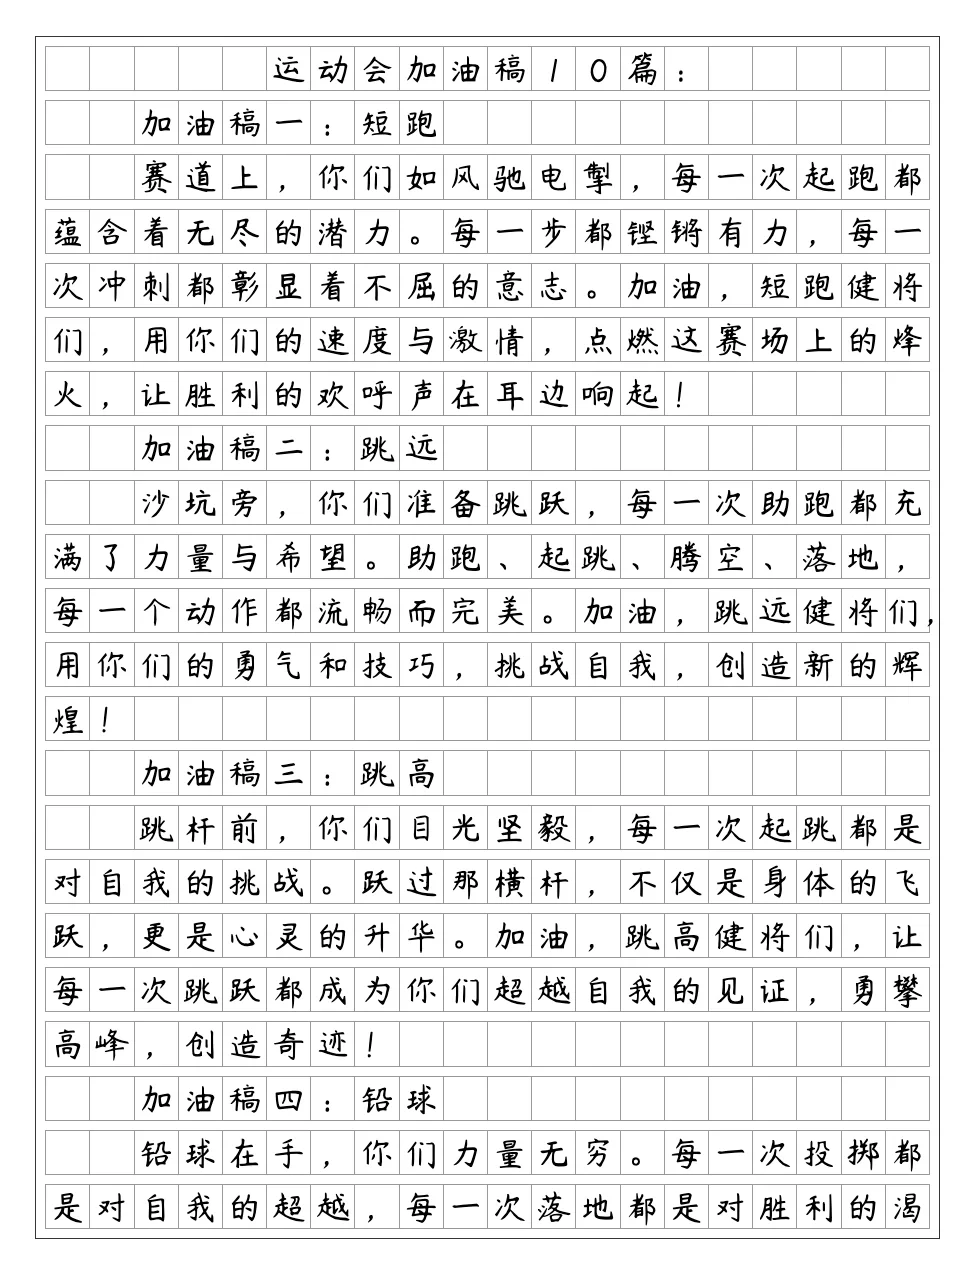 运动会加油稿10篇：
加油稿一：短跑
赛道上，你们如风驰电掣，每一次起跑都
蕴含着无尽的潜力。每一步都铿锵有力，每一
次冲刺都彰显着不屈的意志。加油，短跑健将
们，用你们的速度与激情，点燃这赛场上的烽
火，让胜利的欢呼声在耳边响起！
加油稿二：跳远
沙坑旁，你们准备跳跃，每一次助跑都充
满了力量与希望。助跑、起跳、腾空、落地，
每一个动作都流畅而完美。加油，跳远健将们，
用你们的勇气和技巧，挑战自我，创造新的辉
煌！
加油稿三：跳高
跳杆前，你们目光坚毅，每一次起跳都是
对自我的挑战。跃过那横杆，不仅是身体的飞
跃，更是心灵的升华。加油，跳高健将们，让
每一次跳跃都成为你们超越自我的见证，勇攀
高峰，创造奇迹！
加油稿四：铅球
铅球在手，你们力量无穷。每一次投掷都
是对自我的超越，每一次落地都是对胜利的渴